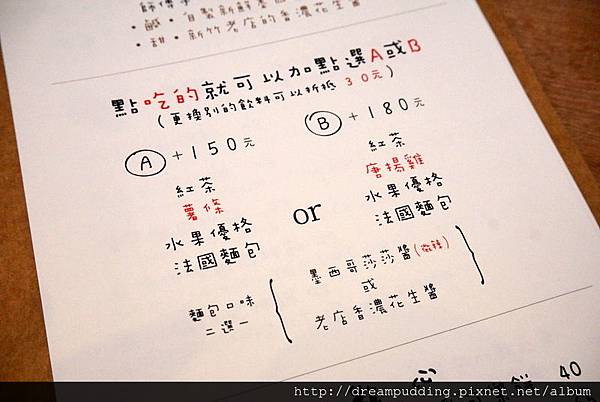 • 鹹・自製新鮮
• 甜・新竹老店的香濃花生醬
點吃的就可以加點選A或B
(更換別的飲料可以折抵30元)
A +150元
紅茶
薯條
水果優格
法國麵包
or
B +180元
紅茶
唐揚雞
水果優格
法國麵包
麵包口味
二選一
墨西哥莎莎醬(微辣)
或
老店香濃花生醬
40
http://dreampudding.pixnet.net/album